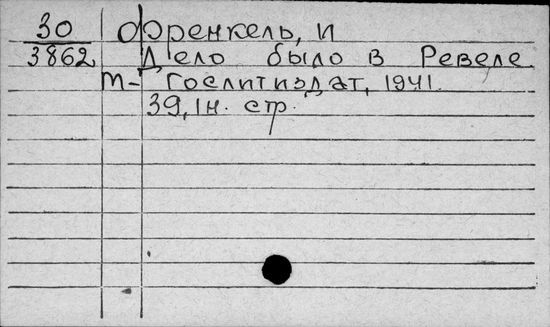 30 Френкель, И
3862 Дело было в Ревеле
м- Гослитиздат, 1941.
39, 1н. стр.